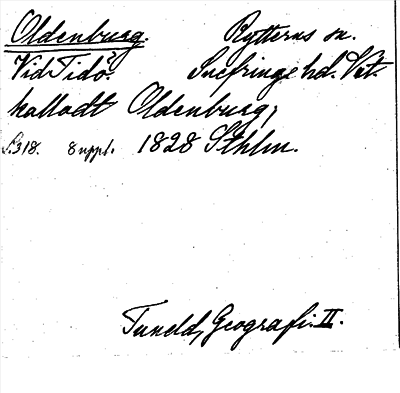 Oldenburg. Rytterns sn.
Vid Tidö. Snefringe hd. Vstl.
kalladt Oldenburg,
S. 318. 8 uppl. 1828 Sthlm.
Tuneld, Geografi. II.